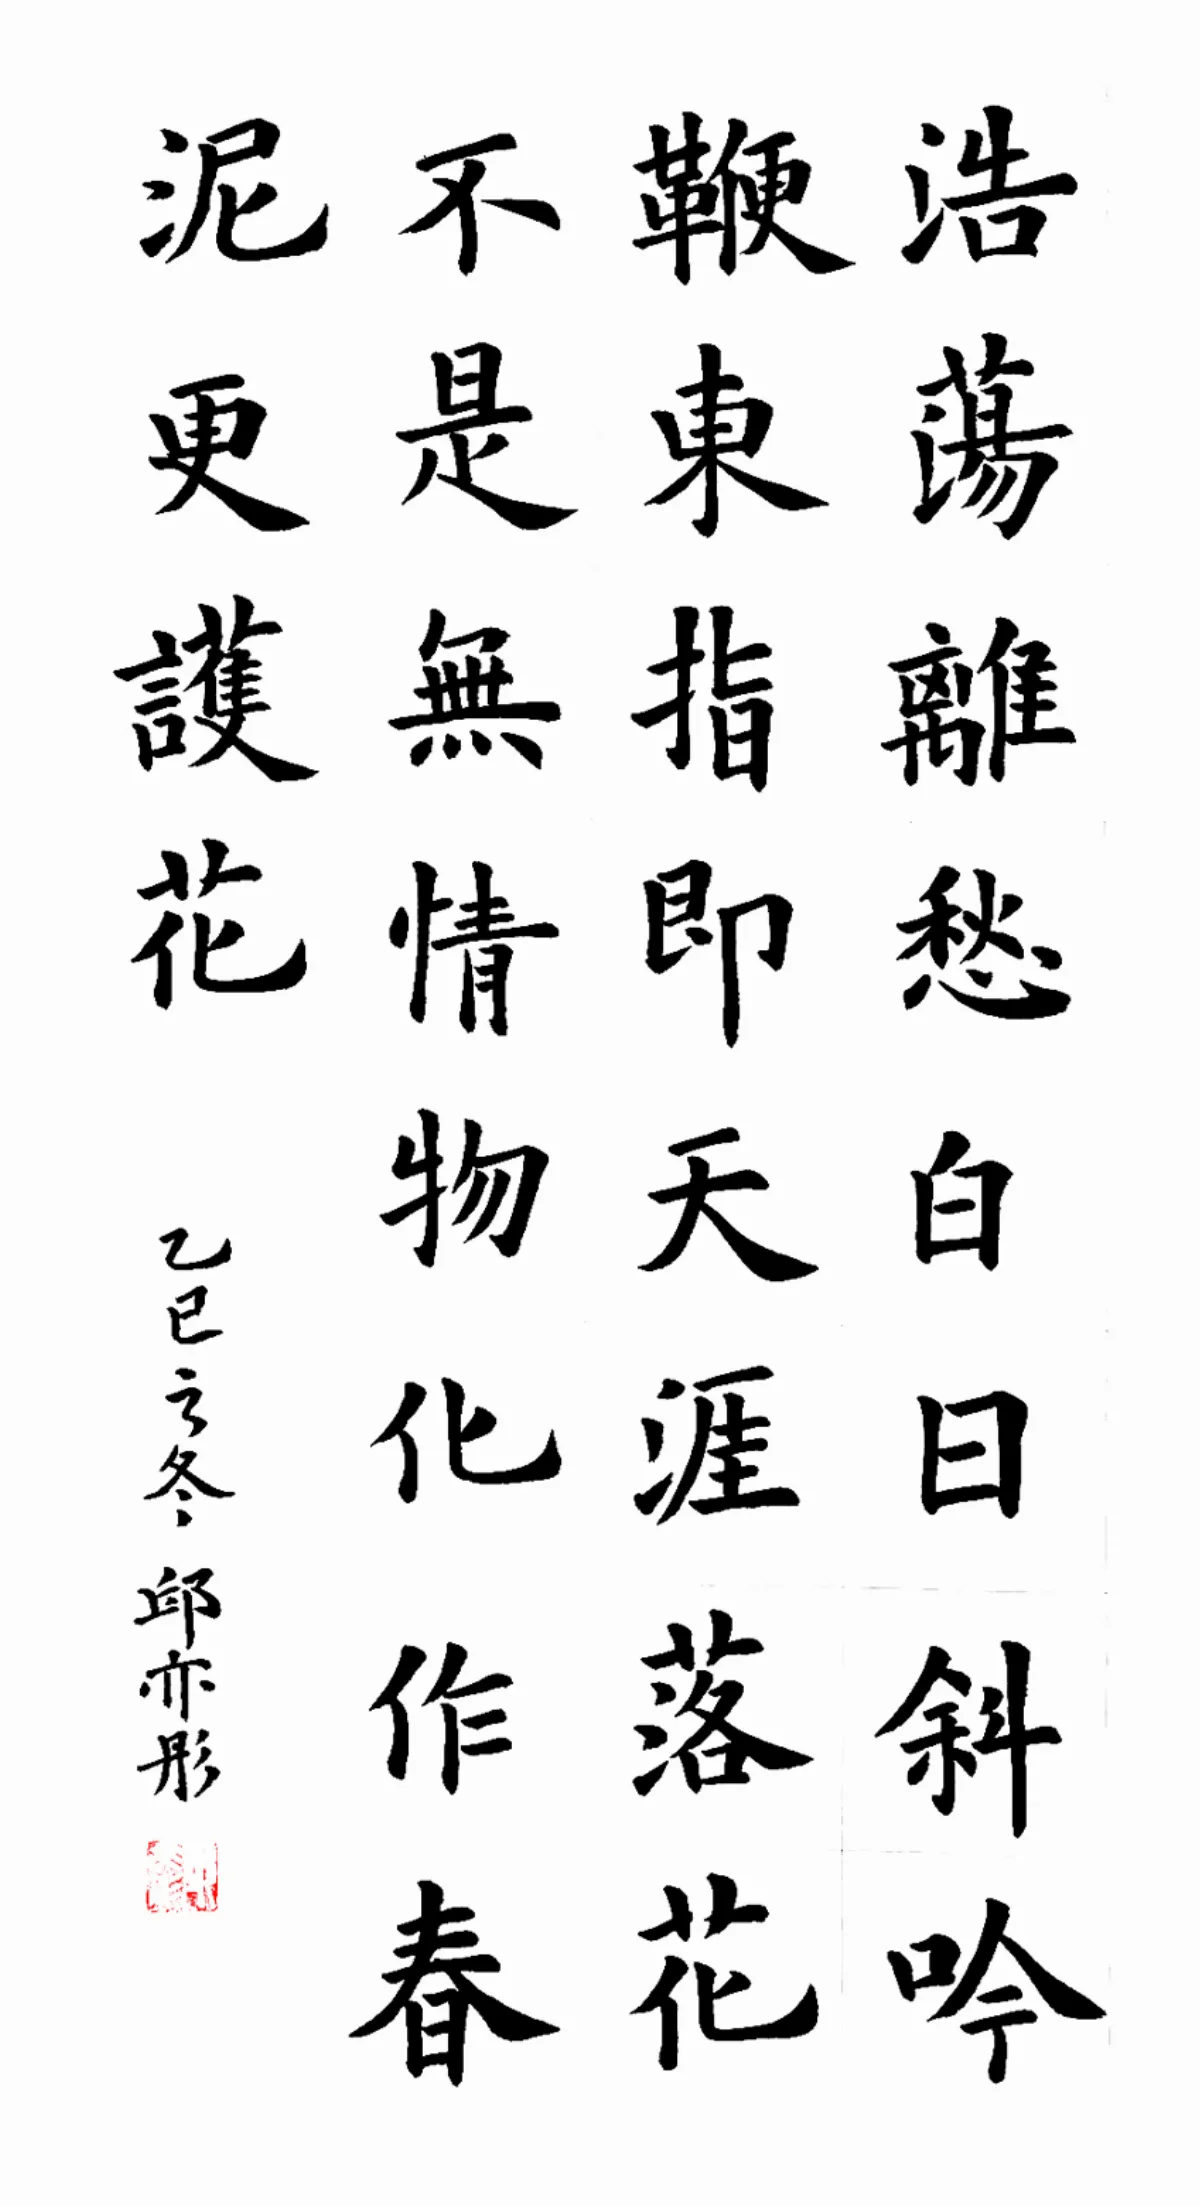 浩蕩離愁白日斜吟
鞭東指即天涯落花
不是無情物化作春
泥更護花
乙巳之冬 邱亦彤